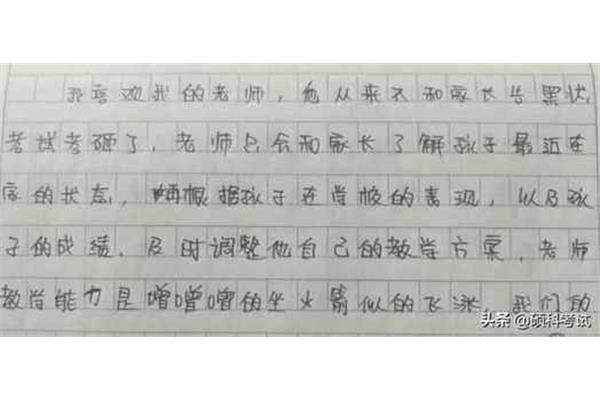 我喜欢我的老师，他从来不和家长告黑状，
考试考砸了，老师只会和家长了解孩子最近在
家的状态，再根据孩子在学校的表现，以及孩
子的成绩，及时调整他自己的教学方案，老师
教学能力是噌噌噌的坐火箭似的飞涨，我们的
头条 @硕科考试